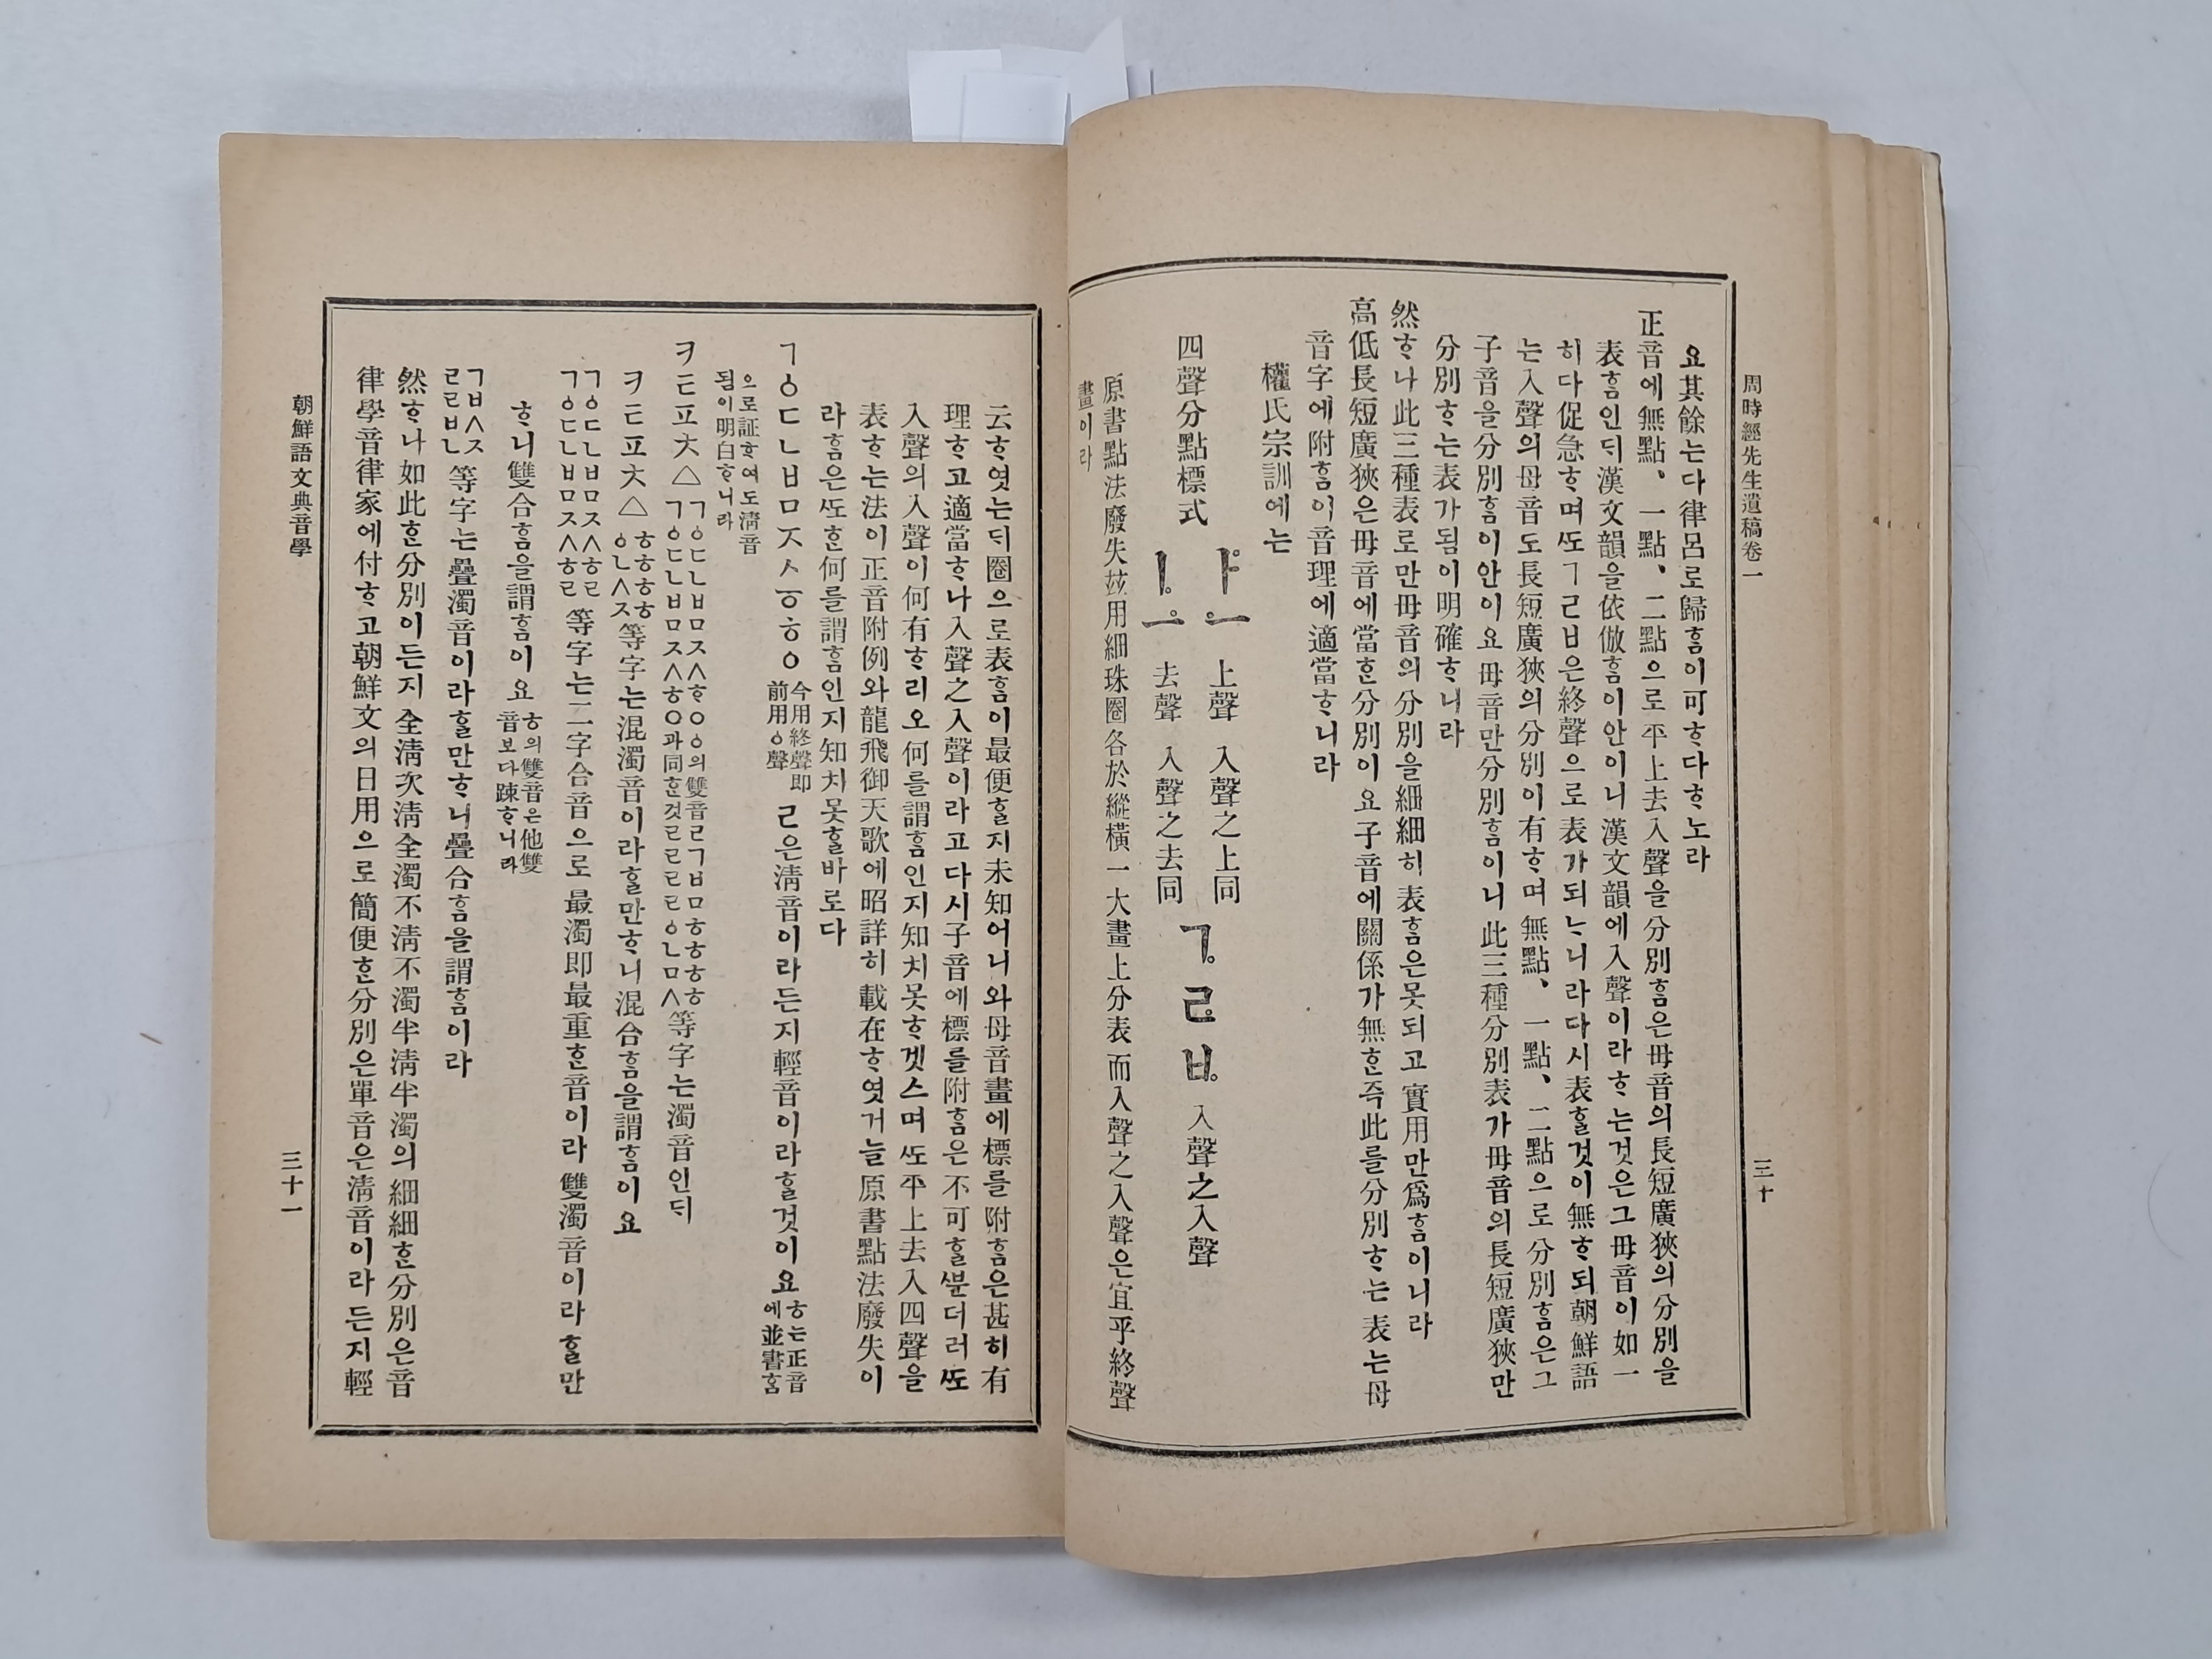 周時經先生遺稿卷一
三十
요其餘는다律呂로歸ᄒᆞᆷ이可ᄒᆞ다ᄒᆞ노라
正音에無點、一點、二點으로平上去入聲을分別ᄒᆞᆷ은母音의長短廣狹의分別을
表ᄒᆞᆷ인ᄃᆡ漢文韻을依倣ᄒᆞᆷ이안이니漢文韻에入聲이라ᄒᆞ는것은그母音이如一
히다促急ᄒᆞ며ᄯᅩㄱㄹㅂ은終聲으로表가되ᄂᆞ니라다시表ᄒᆞᆯ것이無ᄒᆞ되朝鮮語
는入聲의母音도長短廣狹의分別이有ᄒᆞ며無點、一點、二點으로分別ᄒᆞᆷ은그
子音을分別ᄒᆞᆷ이안이요母音만分別ᄒᆞᆷ이니此三種分別表가母音의長短廣狹만
分別ᄒᆞ는表가됨이明確ᄒᆞ니라
然ᄒᆞ나此三種表로만母音의分別을細細히表ᄒᆞᆷ은못되고實用만爲ᄒᆞᆷ이니라
高低長短廣狹은母音에當ᄒᆞᆫ分別이요子音에關係가無ᄒᆞᆫ즉此를分別ᄒᆞ는表는母
音字에附ᄒᆞᆷ이音理에適當ᄒᆞ니라
權氏宗訓에는
四聲分點標式
上聲 入聲之上同
去聲 入聲之去同
ㄱ ㄹ ㅂ 入聲之入聲
原書點法廢失玆用細珠圈各於縱橫一大畫上分表而入聲之入聲은宜乎終聲
畫이라
云ᄒᆞ엿는ᄃᆡ圈으로表ᄒᆞᆷ이最便ᄒᆞᆯ지未知어니와母音畫에標를附ᄒᆞᆷ은甚히有
理ᄒᆞ고適當ᄒᆞ나入聲之入聲이라고다시子音에標를附ᄒᆞᆷ은不可ᄒᆞᆯᄲᅮᆫ더러ᄯᅩ
入聲의入聲이何有ᄒᆞ리오何를謂ᄒᆞᆷ인지知치못ᄒᆞ겟스며ᄯᅩ平上去入四聲을
表ᄒᆞ는法이正音附例와龍飛御天歌에昭詳히載在ᄒᆞ엿거늘原書點法廢失이
라ᄒᆞᆷ은ᄯᅩᄒᆞᆫ何를謂ᄒᆞᆷ인지知치못ᄒᆞᆯ바로다
ㄱㆁㄷㄴㅂㅁㅈㅅㆆㅎㅇ今用終聲即前用ㆁ聲ㄹ은淸音이라든지輕音이라ᄒᆞᆯ것이요ㅎ는正音에並書홈
으로証ᄒᆞ여도淸音됨이明白ᄒᆞ니라
ㅋㅌㅍㅊㅿㄱㆁㄷㄴㅂㅁㅈㅅㅎㅇㆁ의雙音ㄹㄱㅂㅁㅎㅎㅎㅎ과同ᄒᆞᆫ것ㄹㄹㄹㄹㆁㄴㅁㅅ等字는濁音인ᄃᆡ
ㅋㅌㅍㅊㅿㅎㅎㅎㅎㆁㄴㅅㅈ等字는混濁音이라ᄒᆞᆯ만ᄒᆞ니混合ᄒᆞᆷ을謂ᄒᆞᆷ이요
ㄱㆁㄷㄴㅂㅁㅈㅅㅎㄹㄱㆁㄷㄴㅂㅁㅈㅅㅎㄹ等字는二字合音으로最濁即最重ᄒᆞᆫ音이라雙濁音이라ᄒᆞᆯ만
ᄒᆞ니雙合ᄒᆞᆷ을謂ᄒᆞᆷ이요ㅎ의雙音은他雙音보다踈ᄒᆞ니라
ㄱㅂㅅㅈㄹㄹㅂㄴ等字는疊濁音이라ᄒᆞᆯ만ᄒᆞ니疊合ᄒᆞᆷ을謂ᄒᆞᆷ이라
然ᄒᆞ나如此ᄒᆞᆫ分別이든지全淸次淸全濁不淸不濁半淸半濁의細細ᄒᆞᆫ分別은音
律學音律家에付ᄒᆞ고朝鮮文의日用으로簡便ᄒᆞᆫ分別은單音은淸音이라든지輕
朝鮮語文典音學
三十一